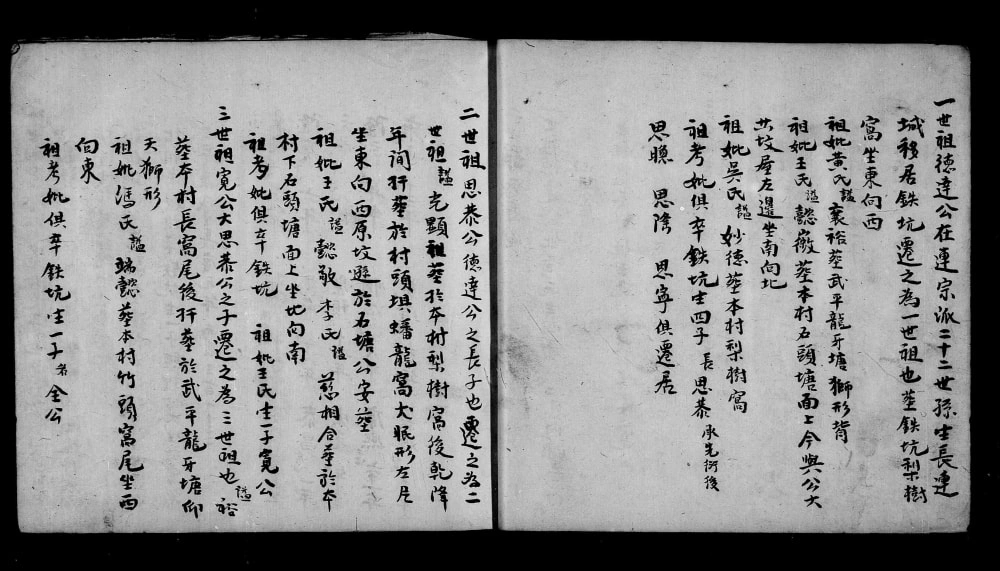 一世祖德達公在連宗派二十二世孫生長連
城移居鉄坑遷之為一世祖也塟鉄坑梨樹
窩坐東向西
祖妣黃氏謚衰裕塟武平龍牙塘獅形背
祖妣王氏謚懿徽塟本村石頭塘面上今與公大
共坟居左邊坐南向北
祖妣吳氏謚妙德塟本村梨樹窩
祖考妣俱卒鉄坑生四子長思恭承先衍後
思聰 思隆 思寧俱遷居
二世祖思恭公德達公之長子也遷之為二
世祖謚光顯祖塟於本村梨樹窩後乾隆
年间扦塟於村頭垻蟠龍窩犬眠形左片
坐東向西原坟遜於石塘公安塟
祖妣王氏謚懿敬 李氏謚慈相合塟於本
村下石頭塘面上坐北向南
祖考妣俱卒鉄坑 祖妣王氏生一子寬公
三世祖寬公大思恭公之子遷之為三世祖也謚裕
塟本村長窩尾後扦塟於武平龍牙塘仰
天獅形
祖妣馮氏謚瑞懿塟本村竹頭窩尾坐西
向東
祖考妣俱卒鉄坑生一子名全公